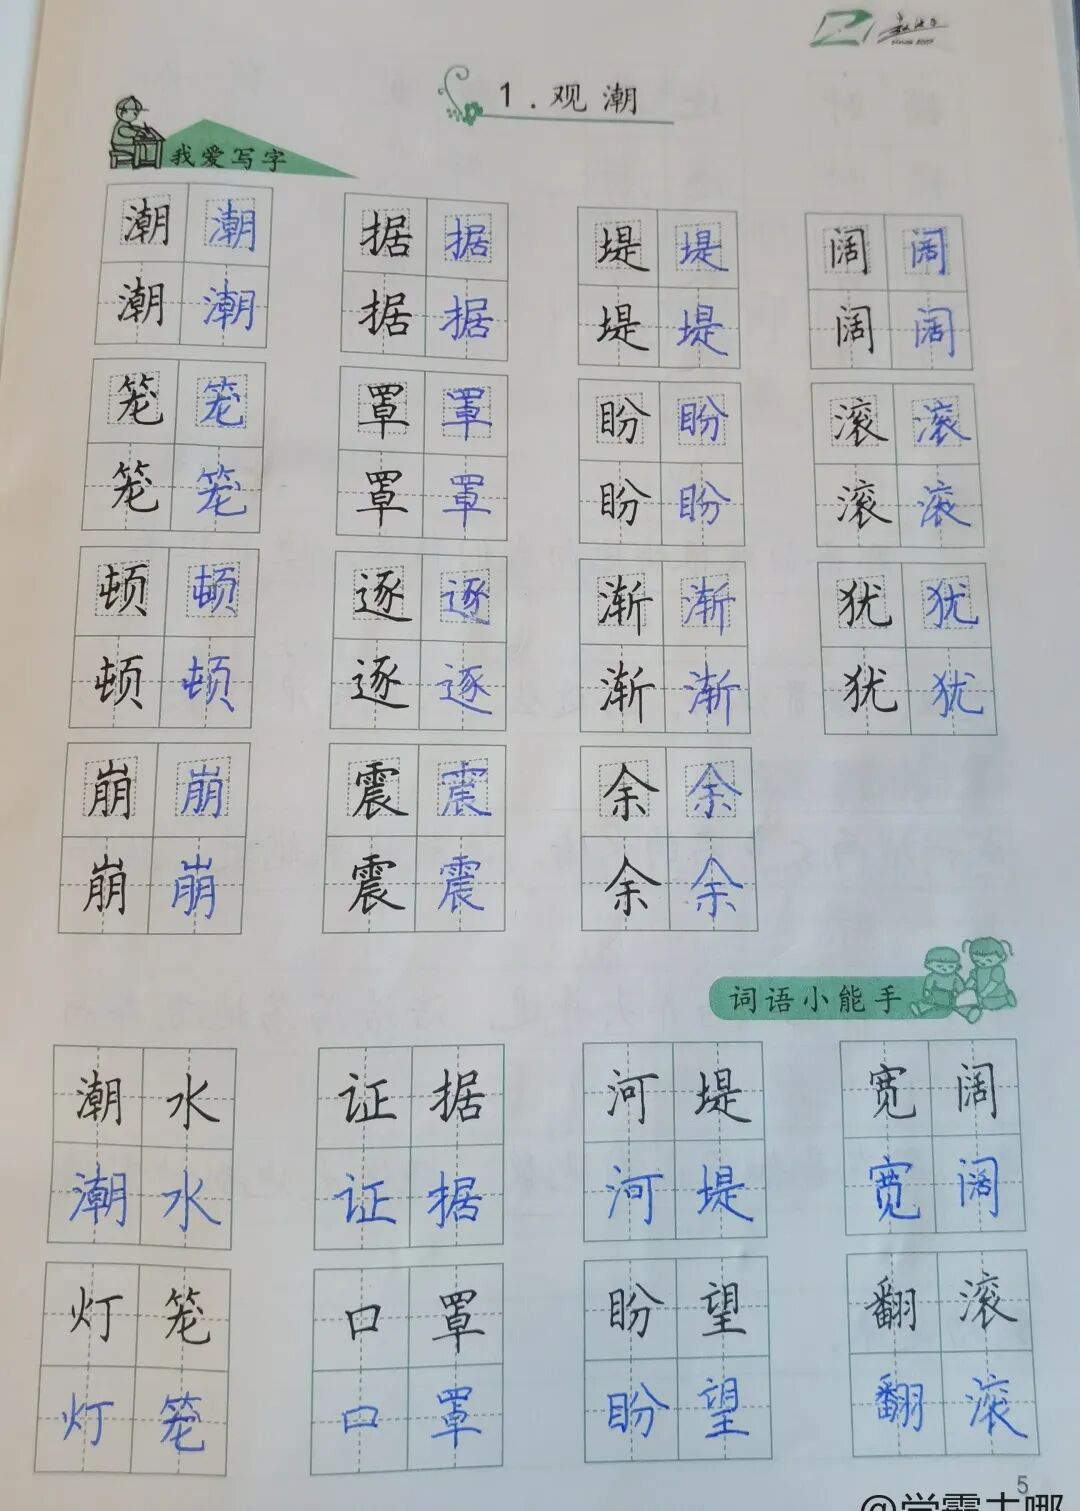 1.观潮
我爱写字
潮潮 据据 堤堤 阔阔
潮潮 据据 堤堤 阔阔
笼笼 罩罩 盼盼 滚滚
笼笼 罩罩 盼盼 滚滚
顿顿 逐逐 渐渐 犹犹
顿顿 逐逐 渐渐 犹犹
崩崩 震震 余余
崩崩 震震 余余
词语小能手
潮水 证据 河堤 宽阔
潮水 证据 河堤 宽阔
灯笼 口罩 盼望 翻滚
灯笼 口罩 盼望 翻滚
5